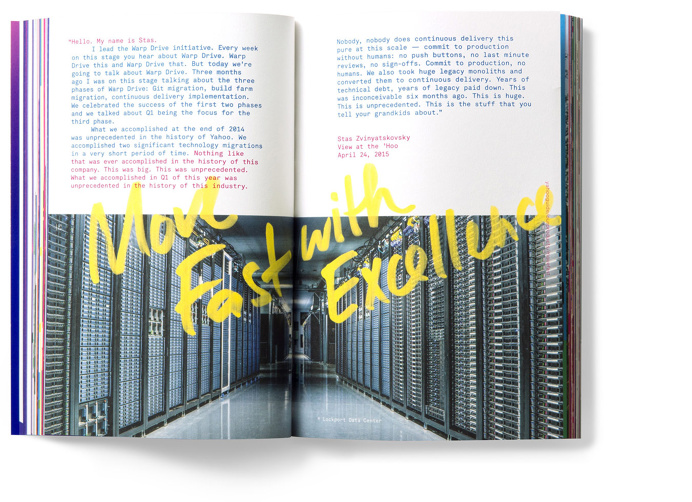 "Hello. My name is Stas.
I lead the Warp Drive initiative. Every week
on this stage you hear about Warp Drive. Warp
Drive this and Warp Drive that. But today we're
going to talk about Warp Drive. Three months
ago I was on this stage talking about the three
phases of Warp Drive: Git migration, build farm
migration, continuous delivery implementation.
We celebrated the success of the first two phases
and we talked about Q1 being the focus for the
third phase.
What we accomplished at the end of 2014
was unprecedented in the history of Yahoo. We
accomplished two significant technology migrations
in a very short period of time. Nothing like
that was ever accomplished in the history of this
company. This was big. This was unprecedented.
What we accomplished in Q1 of this year was
unprecedented in the history of this industry.
Nobody, nobody does continuous delivery this
pure at this scale — commit to production
without humans: no push buttons, no last minute
reviews, no sign-offs. Commit to production, no
humans. We also took huge legacy monoliths and
converted them to continuous delivery. Years of
technical debt, years of legacy paid down. This
was inconceivable six months ago. This is huge.
This is unprecedented. This is the stuff that you
tell your grandkids about."
Stas Zvinyatskovsky
View at the 'Hoo
April 24, 2015
Move with
Fast Excellence
Lockport Data Center